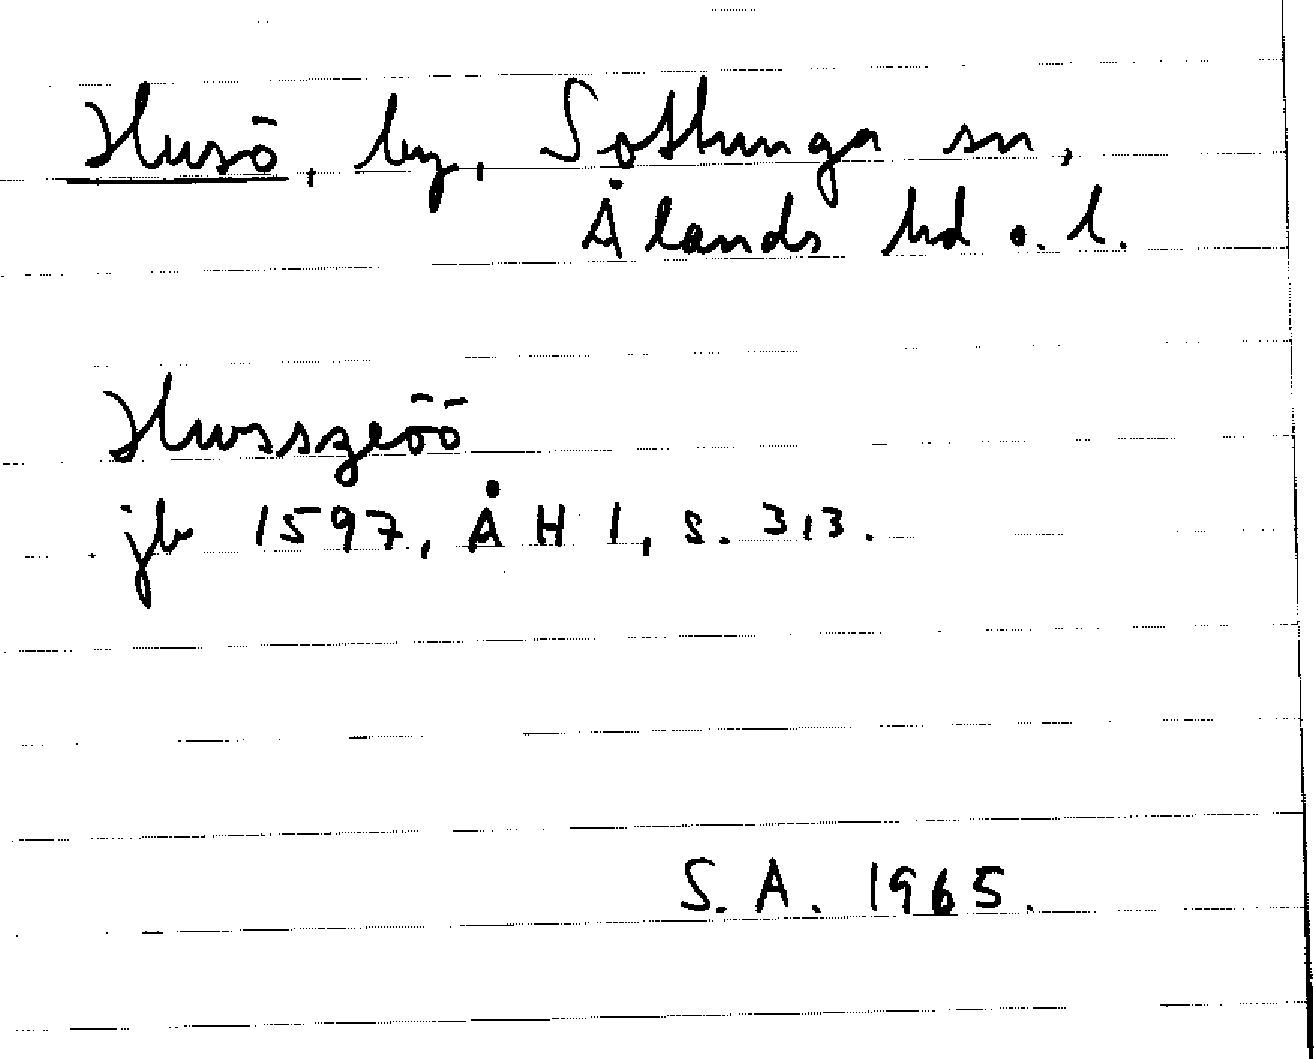 Husö, by, Sottunga sn,
Ålands hd o. l.
Husszeöö
jb 1597, ÅH I, s. 313.
S. A. 1965.